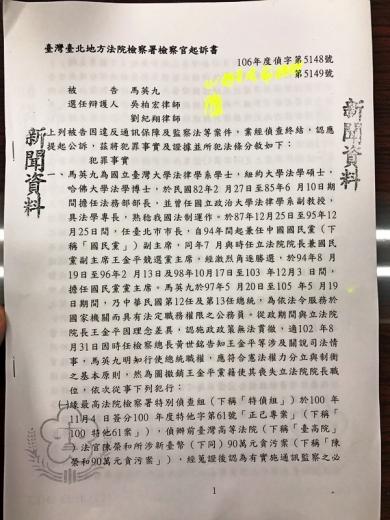 臺灣臺北地方法院檢察署檢察官起訴書
106年度偵字第5148號
第5149號
被　　　告　馬英九
選任辯護人　吳柏宏律師
劉紀翔律師
上列被告因違反通訊保障及監察法等案件，業經偵查終結，認應
提起公訴，茲將犯罪事實及證據並所犯法條分敘如下：
犯罪事實
一、馬英九為國立臺灣大學法律學系學士，紐約大學法學碩士，
哈佛大學法學博士，於民國82年2 月27日至85年6 月10日期
間擔任法務部部長，並曾任國立政治大學法律學系副教授，
具法學專長，熟稔我國法制運作。於87年12月25日至95年12
月25日間，任臺北市市長，自94年間起兼任中國國民黨（下
稱「國民黨」）副主席，同年7 月與時任立法院院長兼國民
黨副主席王金平競選黨主席。經激烈角逐勝選，於94年8 月
19日至96年2 月13日及98年10月17日至103 年12月3 日間，
擔任國民黨黨主席。馬英九於97年5 月20日至105 年5 月19
日期間，乃中華民國第12任及第13任總統，為依法令服務於
國家機關而具有法定職務權限之公務員。從政期間與立法院
院長王金平因理念差異，認施政政策無法貫徹，適102 年8
月31日因時任檢察總長黃世銘告知王金平等涉及關說司法情
事，馬英九明知行使總統職權，應符合憲法權力分立與制衡
之基本原則，然為圖撤銷王金平黨籍使其喪失立法院院長職
位，依次從事下列犯行：
㈠緣最高法院檢察署特別偵查組（下稱「特偵組」）於100 年
11月4 日簽分100 年度特他字第61號「正己專案」（下稱「
100 特他61案」），偵辦前臺灣高等法院（下稱「臺高院」
）法官陳榮和所涉新臺幣（下同）90萬元貪污案（下稱「陳
榮和90萬元貪污案」），經蒐證後認為有實施通訊監察之必
1
新聞資料
新聞資料